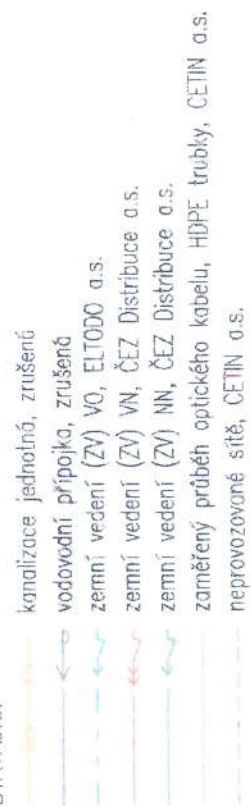 kanalizace jednotná, zrušená
vodovodní přípojka, zrušená
zemní vedení (ZV) VO, ELTODO a.s.
zemní vedení (ZV) VN, ČEZ Distribuce a.s.
zemní vedení (ZV) NN, ČEZ Distribuce a.s.
zaměřený průběh optického kabelu, HDPE trubky, CETIN a.s.
neprovozované sítě, CETIN a.s.